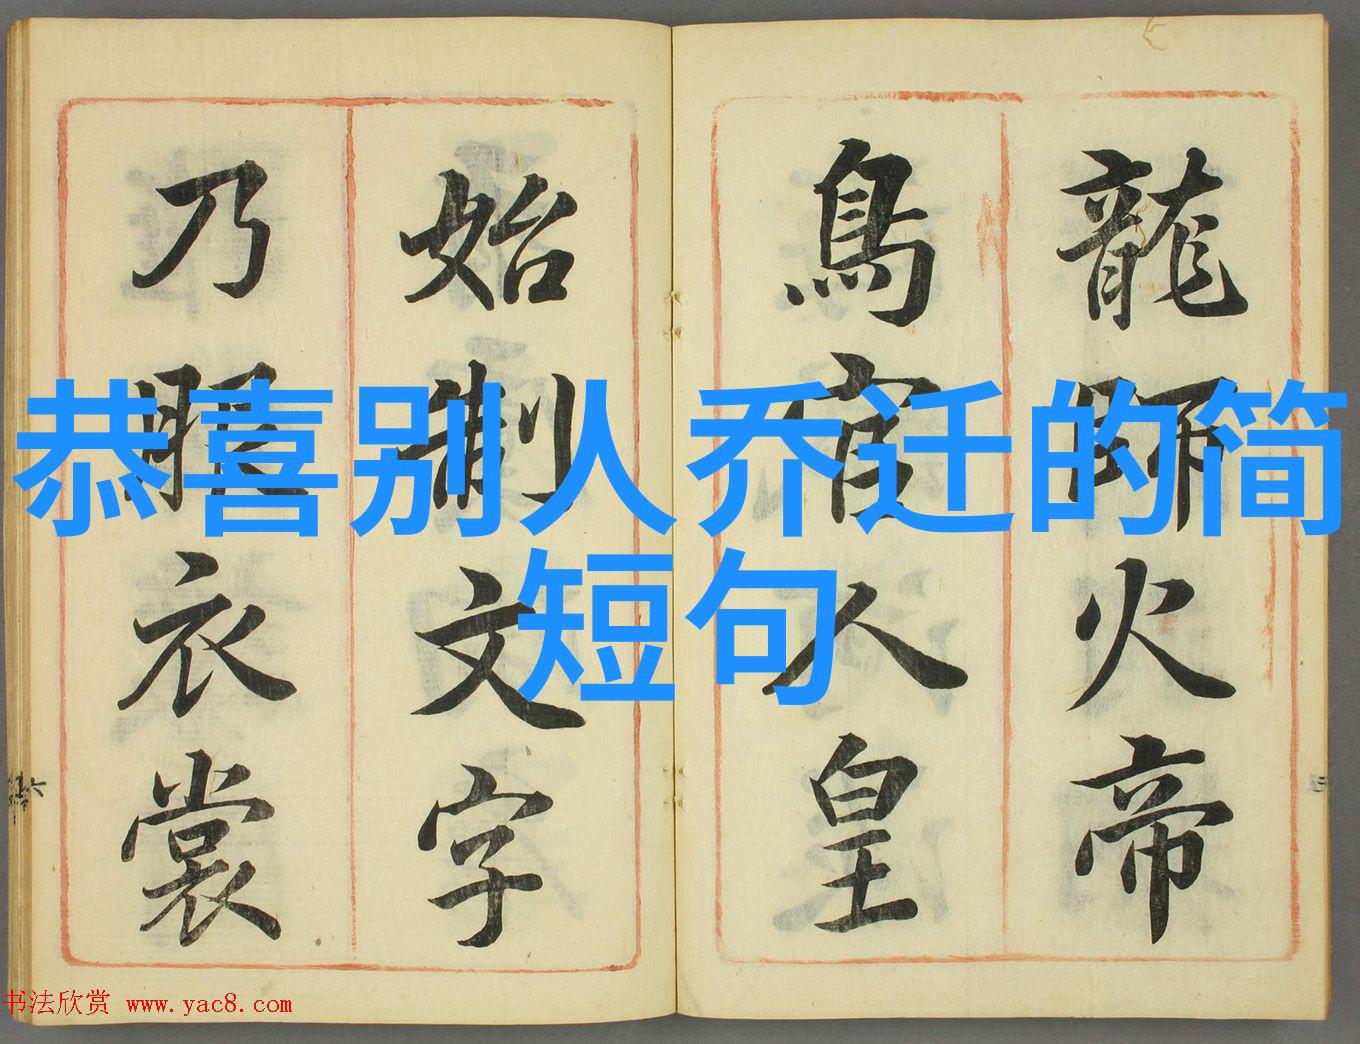 龍師火帝
鳥官人皇
始制文字
乃服衣裳
恭喜别人乔迁的简
短句
书法欣赏 www.yac8.com